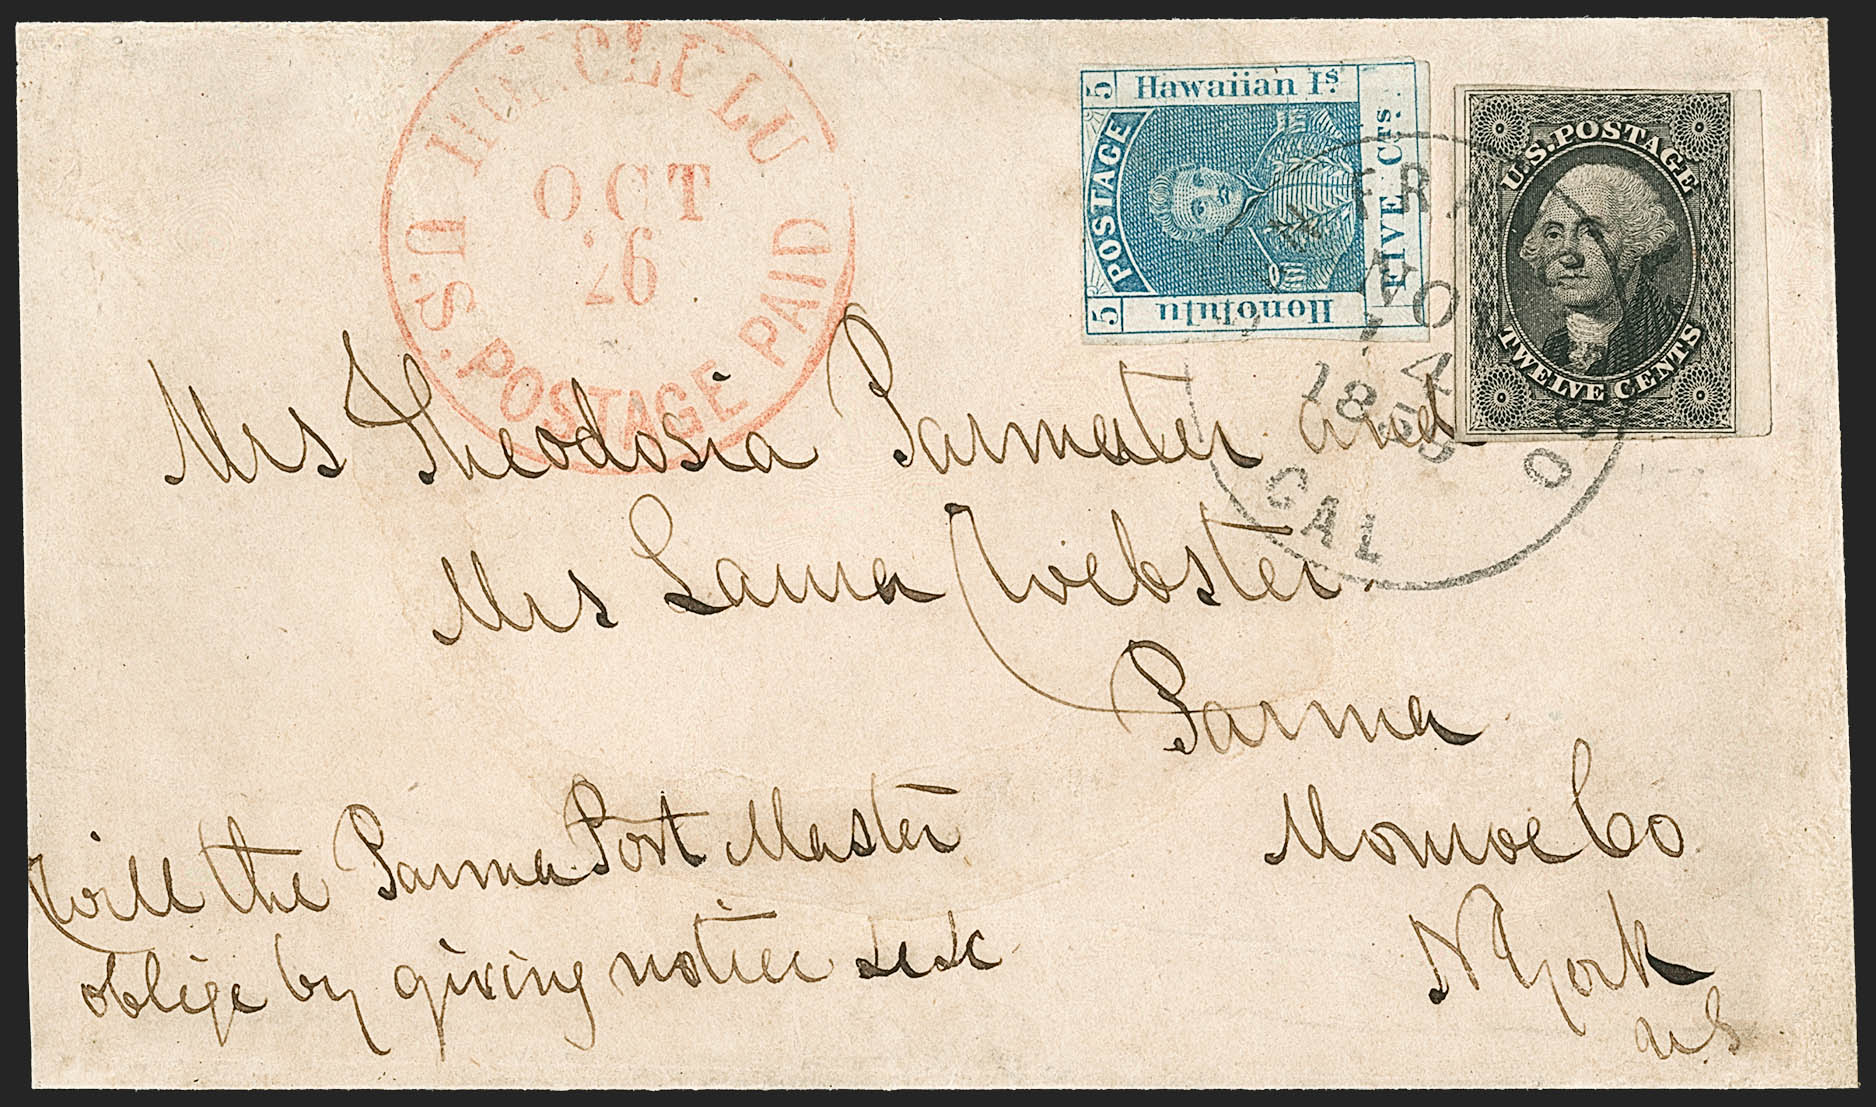 HONOLULU
U.S. POSTAGE PAID
OCT
26
5 Hawaiian Is. 
POSTAGE
FIVE Cts.
5 Honolulu
U.S. POSTAGE
TWELVE CENTS
FRA
NO
14
185
CAL
Mrs Theodosia Parmater and
Mrs Laura Webster.
Parma
Monroe Co
N York
U S
Will the Parma Post Master
oblige by giving notice